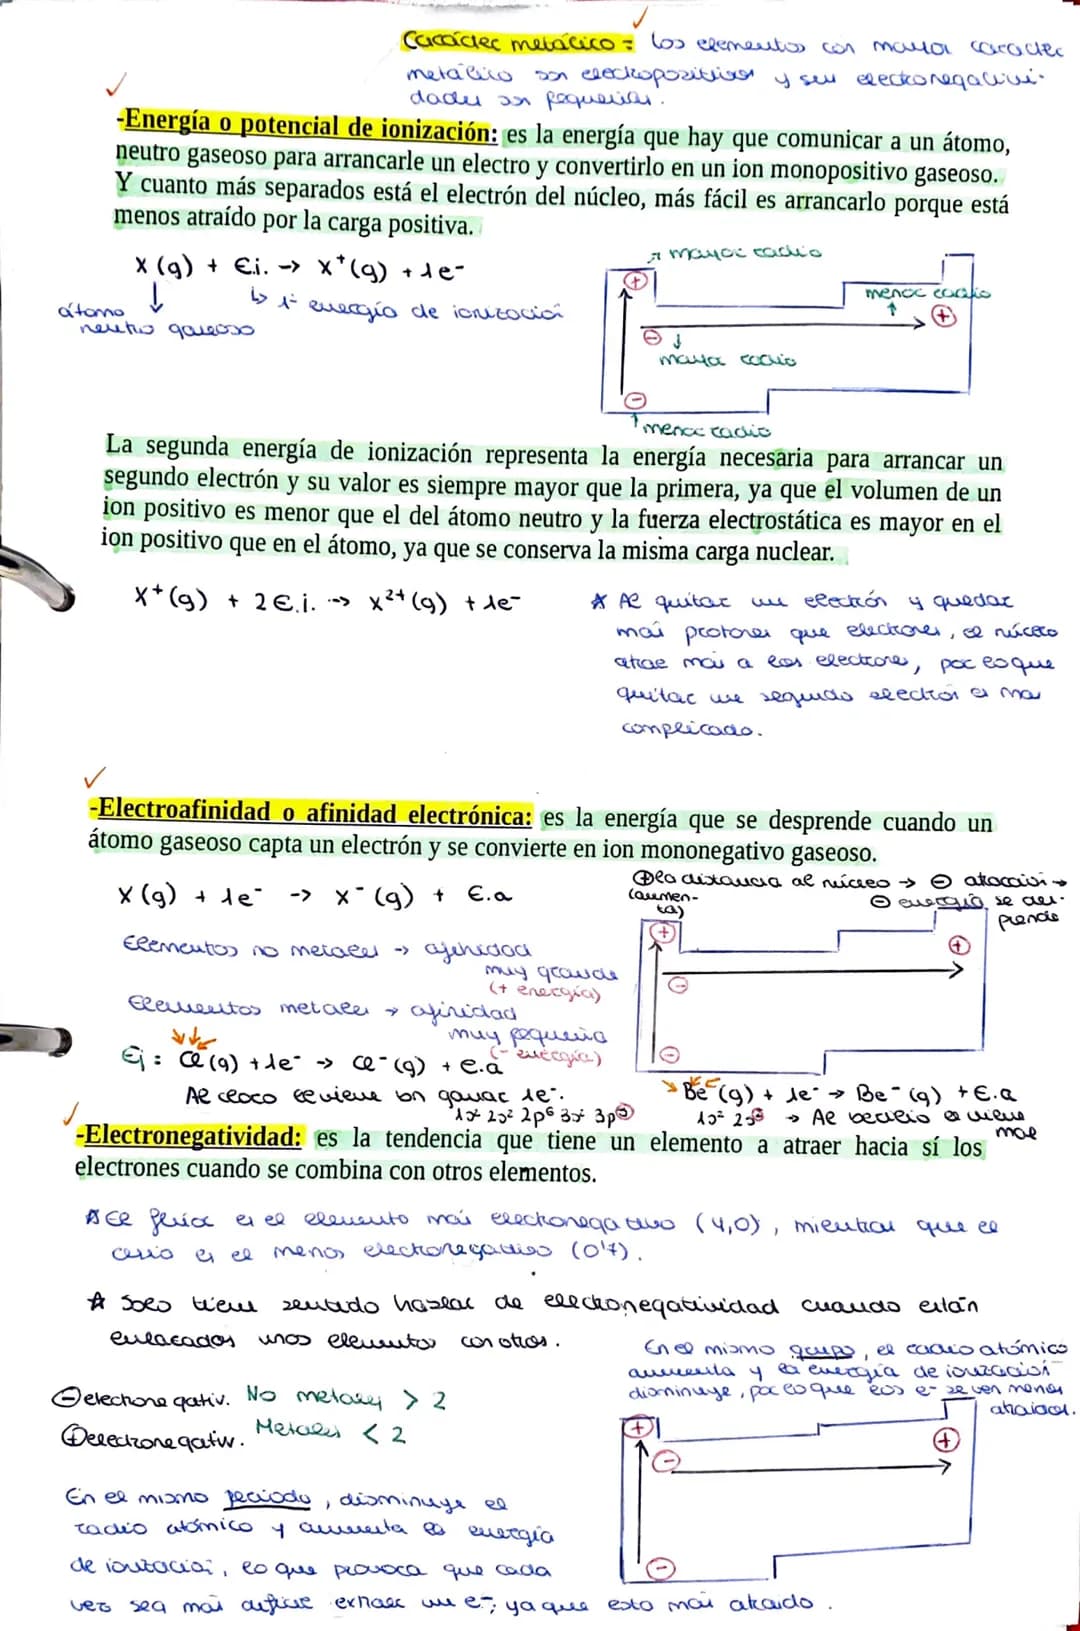 Carácter metálico = los elementos con mayor carácter
metálico son electropositivos y sus electronegativi-
dades son pequeñas.
-Energía o potencial de ionización: es la energía que hay que comunicar a un átomo,
neutro gaseoso para arrancarle un electro y convertirlo en un ion monopositivo gaseoso.
Y cuanto más separados está el electrón del núcleo, más fácil es arrancarlo porque está
menos atraído por la carga positiva.
X (g) + E.i. -> X⁺(g) + 1e⁻
átomo
neutro gaseoso
↳ 1ª energía de ionización
mayor radio
+
menor radio
+
-
mayor radio
-
menor radio
La segunda energía de ionización representa la energía necesaria para arrancar un
segundo electrón y su valor es siempre mayor que la primera, ya que el volumen de un
ion positivo es menor que el del átomo neutro y la fuerza electrostática es mayor en el
ion positivo que en el átomo, ya que se conserva la misma carga nuclear.
X⁺(g) + 2E.i. -> X²⁺(g) + 1e⁻
* Al quitar un electrón y quedar
más protones que electrones, el núcleo
atrae más a los electrones, por lo que
quitar un segundo electrón es más
complicado.
-Electroafinidad o afinidad electrónica: es la energía que se desprende cuando un
átomo gaseoso capta un electrón y se convierte en ion mononegativo gaseoso.
X (g) + 1e⁻ -> X⁻(g) + E.a
⊕ la distancia al núcleo → ⊖ atracción →
(aumen-
ta)
⊖ energía se des-
prende
Elementos no metales → afinidad
muy grande
(+ energía)
Elementos metales → afinidad
muy pequeña
(- energía)
+
+
-
-
Ej: Cl (g) + 1e⁻ → Cl⁻(g) + e.a
Al cloro le viene bn ganar 1e⁻.
1s² 2s² 2p⁶ 3s² 3p⑤
Be (g) + 1e⁻ → Be⁻(g) + E.a
1s² 2s³ → Al berilio le viene
mal
-Electronegatividad: es la tendencia que tiene un elemento a atraer hacia sí los
electrones cuando se combina con otros elementos.
* El flúor es el elemento más electronegativo (4,0), mientras que el
cesio es el menos electronegativo (0'7).
* Solo tiene sentido hablar de electronegatividad cuando están
enlazados unos elementos con otros.
⊖ electronegativ. No metales > 2
⊕ electronegativ. Metales < 2
En el mismo grupo, el radio atómico
aumenta y la energía de ionización
disminuye, por lo que los e- se ven menos
atraídos.
+
-
+
-
En el mismo periodo, disminuye el
radio atómico y aumenta la energía
de ionización, lo que provoca que cada
vez sea más difícil extraer un e⁻, ya que está más atraído.